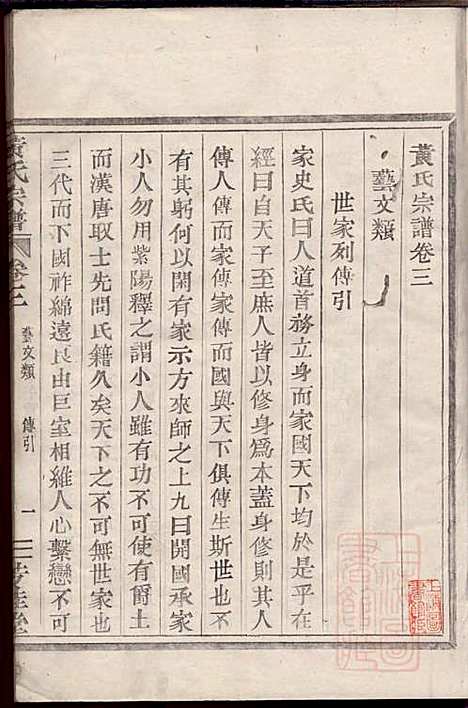 黃氏宗譜卷三
藝文類
世家列傳引
家史氏曰人道首務立身而家國天下均於是乎在
經曰自天子至庶人皆以修身爲本蓋身修則其人
傳人傳而家傳家傳而國與天下俱傳生斯世也不
有其躬何以閑有家示方來師之上九曰開國承家
小人勿用紫陽釋之謂小人雖有功不可使有爵土
而漢唐取士先問氏籍久矣天下之不可無世家也
三代而下國祚綿遠良由巨室相維人心繫戀不可
黃氏宗譜 卷之 藝文類 傳引 一